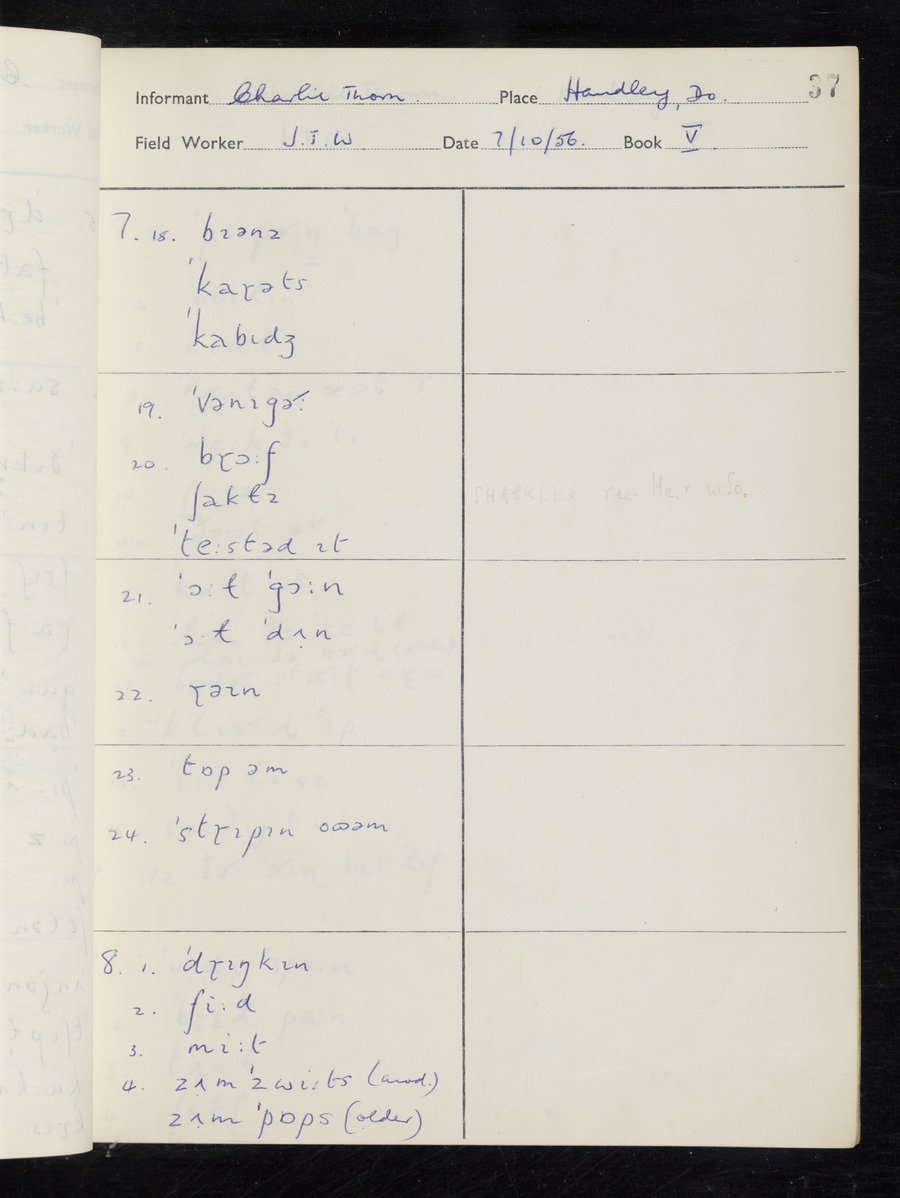 37
Informant Charlie Thorn. Place Handley, Do.
Field Worker J.T.W Date 7/10/56. Book V
7. 18. bɪənz
ˈkaɽəts
ˈkabɪdʒ
19. ˈvənɪgəː
20. bɽɔːf
ʃaktz
ˈteːstəd ɪt
21. ˈɔːt ˈgɔːn
ˈɔ·t ˈdʌn
22. ɽəɪn
23. tɒp əm
24. ˈstɽɪpɪn əm
8. 1. ˈdɽɪŋkɪn
2. fiːd
3. miːt
4. zʌm ˈzwiːts (mod.)
zʌm ˈpɒps (older)